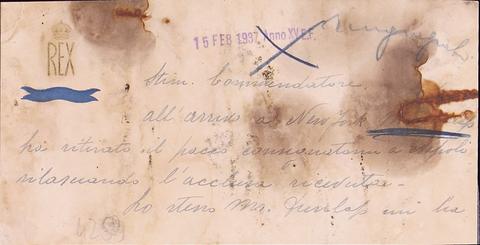 REX
15 FEB 1937 Anno XV E.F.
Stim. Commendatore
all'arrivo a New York
ho ritirato il pacco consegnatomi a Napoli
rilasciando l'acclusa ricevuta -
Lo stesso Mr. Dunlap mi ha